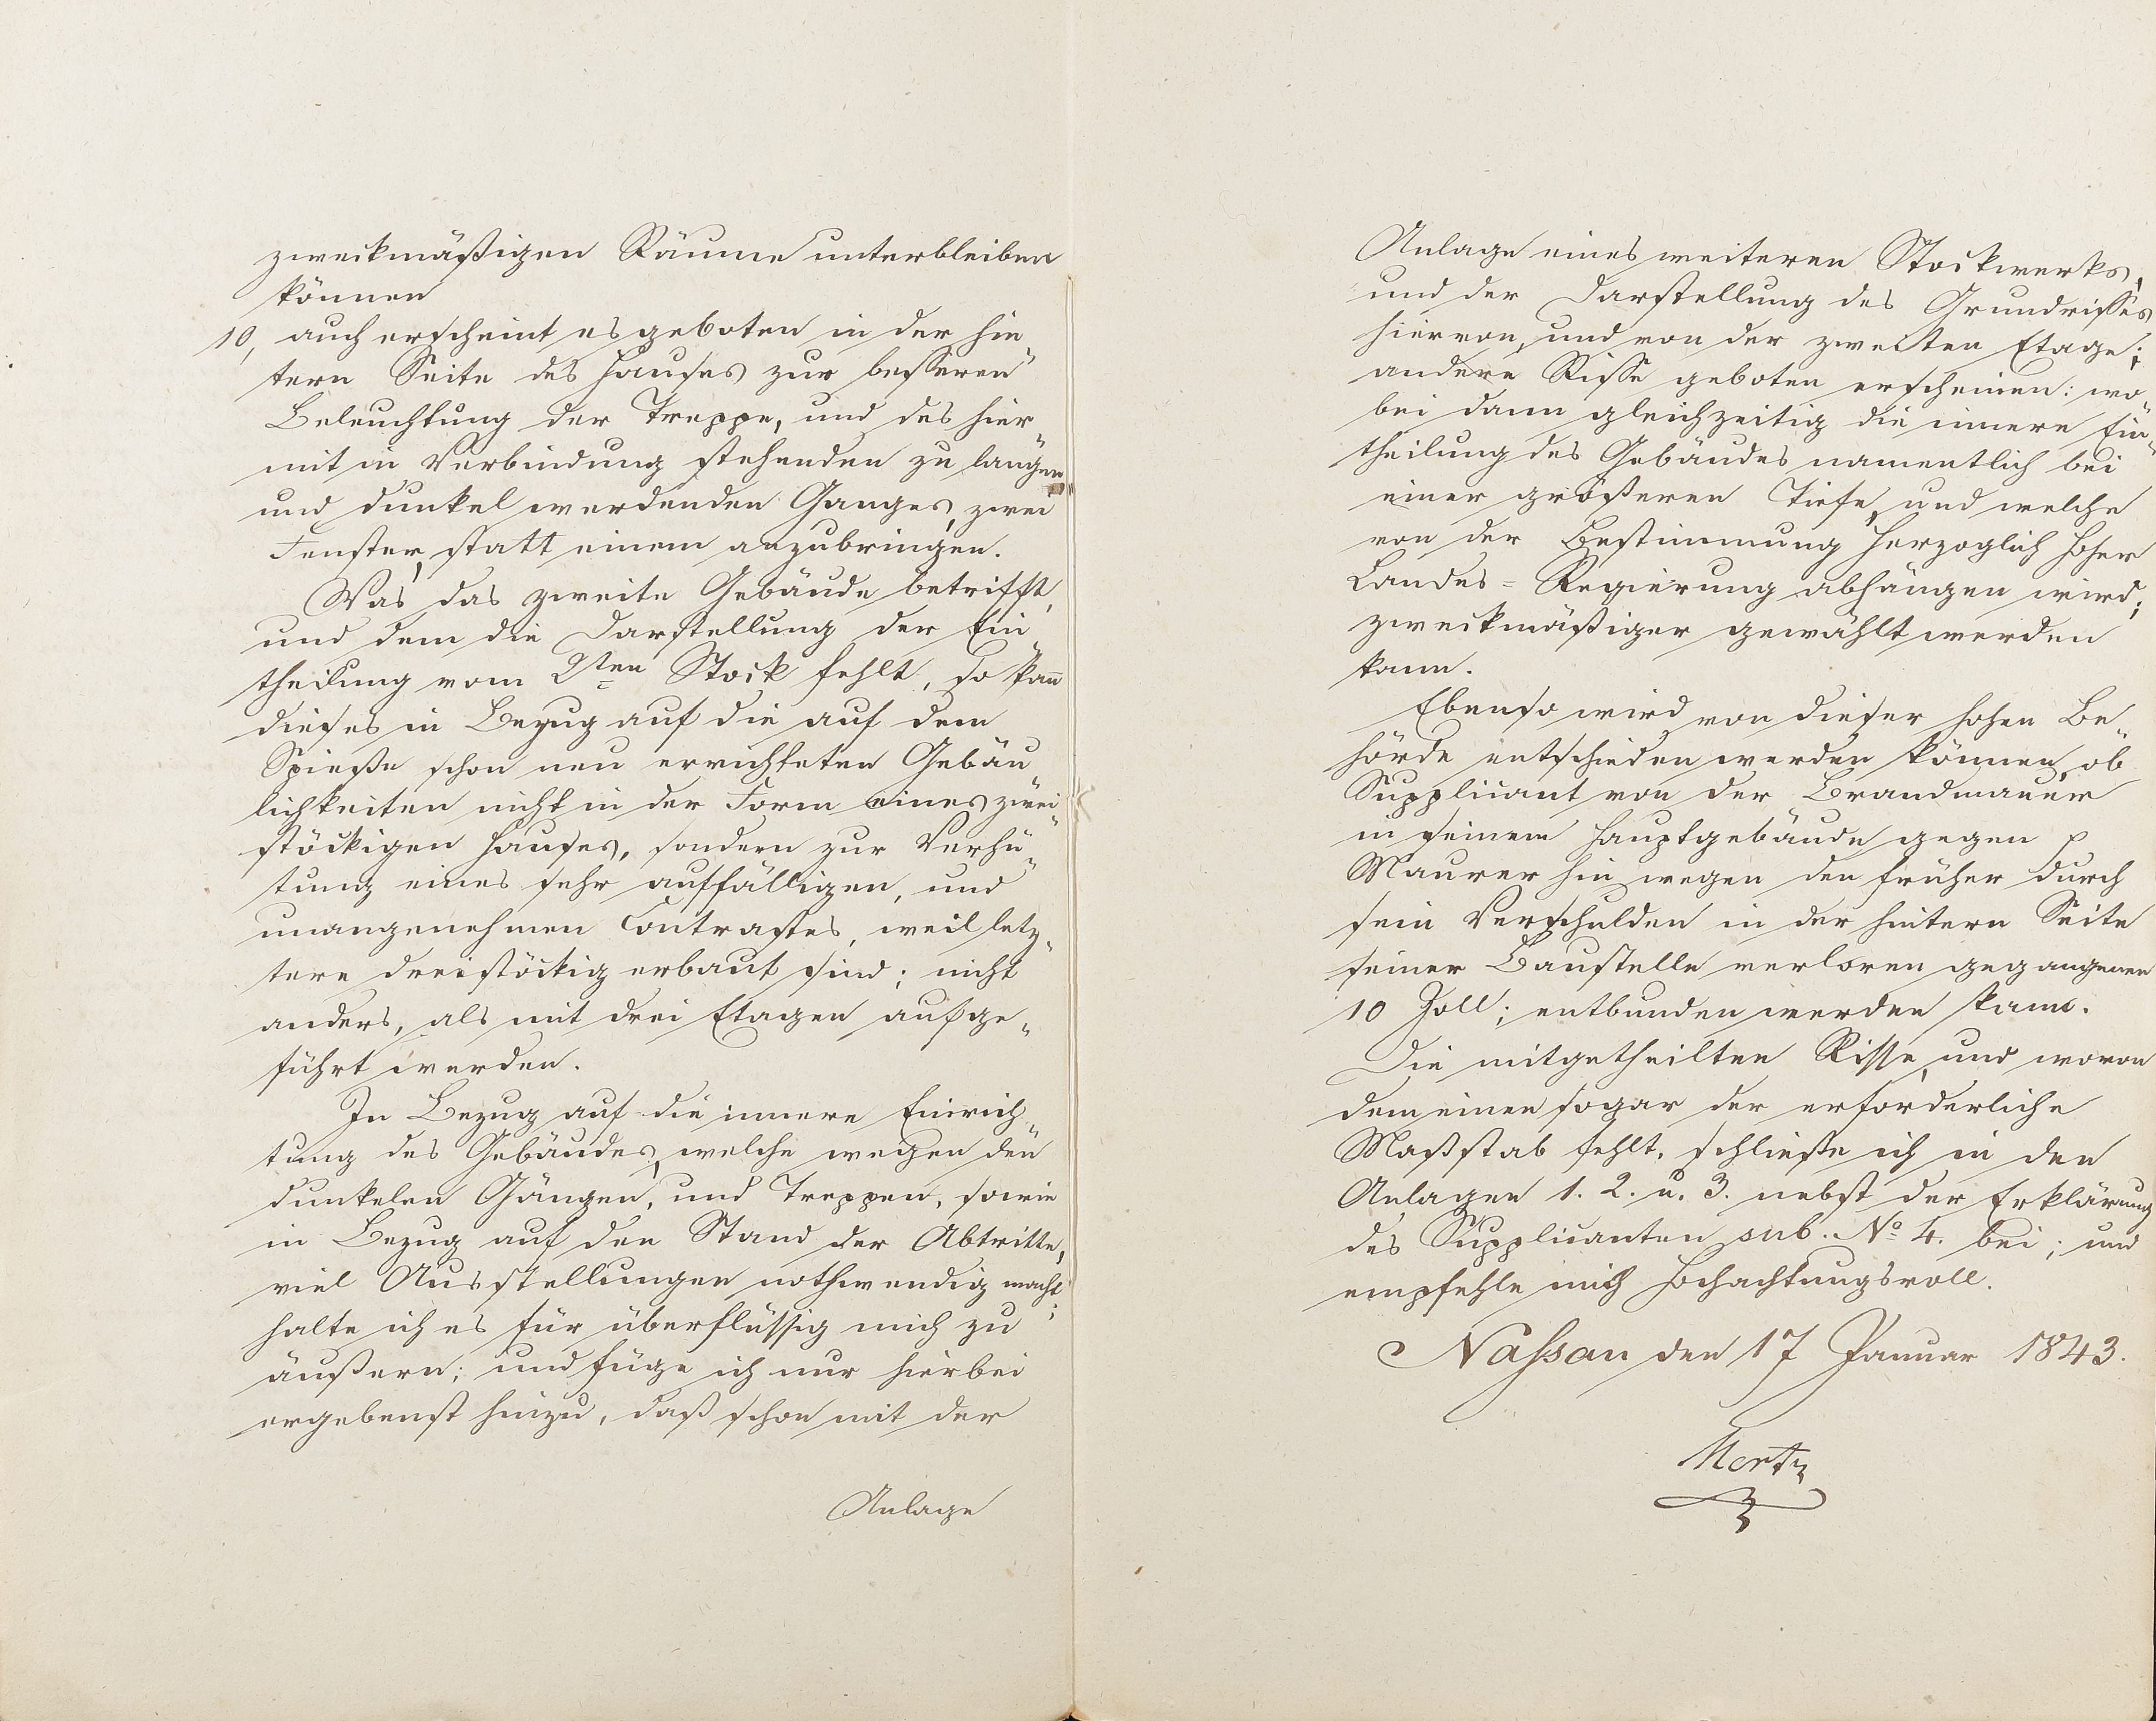 zweckmäßigen Räume unterbleiben
können
10, auch erscheint es geboten in der hin„
tern Seite des Hauses zur besseren
Beleuchtung der Treppe, und des hier„
mit in Verbindung stehenden zu langen
und dunkel werdenden Ganges, zwei
Fenster, statt einem anzubringen.
Was das zweite Gebäude betrifft,
und dem die Darstellung der Ein„
theilung vom 2ten Stock fehlt, so kann
dieses in Bezug auf die auf dem
Spieße schon neu errichteten Gebäu„
lichkeiten nicht in der Form eines zwei„
stöckigen Hauses, sondern zur Verhü„
tung eines sehr auffälligen, und
unangenehmen Contrastes, weil letz„
tere dreistöckig erbaut sind; nicht
anders, als mit drei Etagen aufge„
führt werden.
In Bezug auf die innere Einrich„
tung des Gebäudes, welche wegen den
dunkelen Gängen, und Treppen, sowie
in Bezug auf den Stand der Abtritte,
viel Ausstellungen nothwendig macht;
halte ich es für überflüssig mich zu
äußern; und füge ich nur hierbei
ergebenst hinzu, daß schon mit der
Anlage
Anlage eines weiteren Stockwerks,
und der Darstellung des Grundrisses
hiervon, und von der zweiten Etage;
andere Risse geboten erscheinen: wo„
bei dann gleichzeitig die innere Ein„
theilung des Gebäudes namentlich bei
einer größeren Tiefe, und welche
von der Bestimmung Herzoglich Hoher
Landes=Regierung abhängen wird;
zweckmäßiger gewählt werden
kann.
Ebenso wird von dieser hohen Be„
hörde entschieden werden können, ob
Supplicant von der Brandmauer
in seinem Hauptgebäude gegen p
Maurer hin wegen den früher durch
sein Verschulden in der hintern Seite
seiner Baustelle verloren gegangenen
10 Zoll; entbunden werden kann.
Die mitgetheilten Risse, und wovon
dem einen sogar der erforderliche
Maßstab fehlt, schließe ich in den
Anlagen 1. 2. u. 3. nebst der Erklärung
des Supplicanten sub. No 4. bei; und
empfehle mich Hochachtungsvoll.
Nassau den 17 Januar 1843.
Mertz